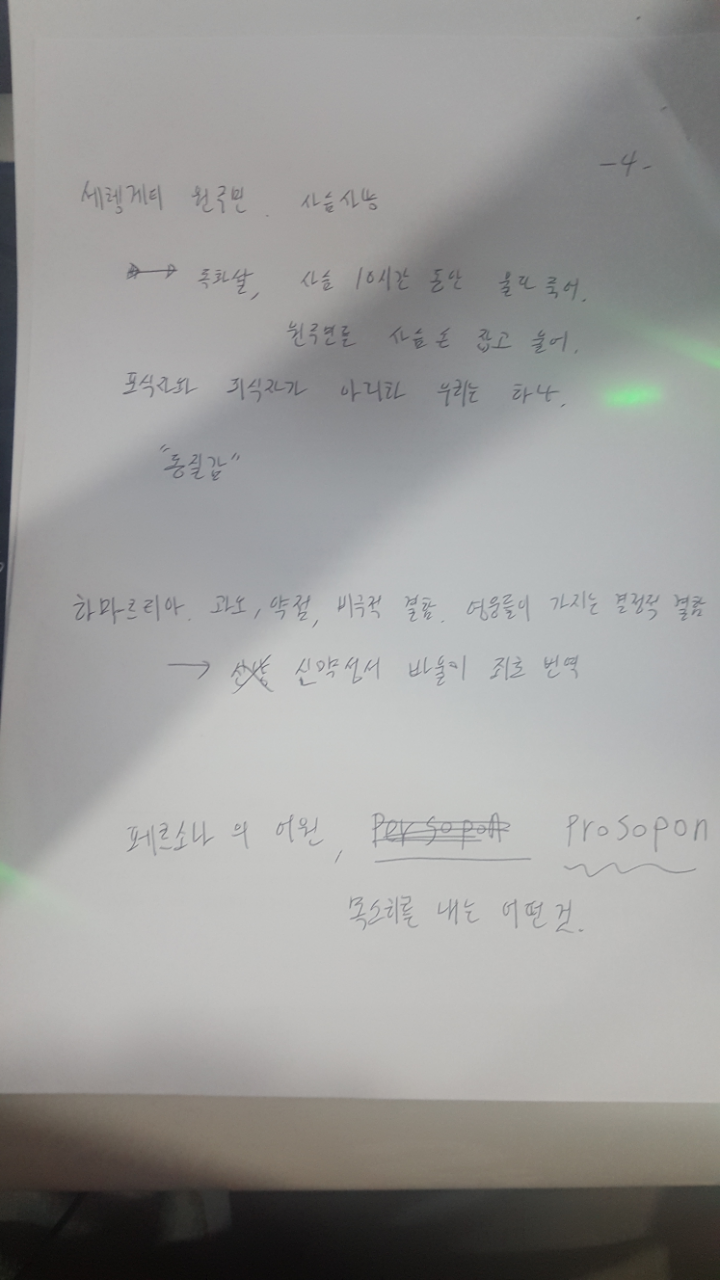 -4-
세렝게티 원주민. 사슴사냥
독화살, 사슴 10시간 동안 울다 죽어.
원주민들 사슴 손 잡고 울어.
포식자와 피식자가 아니라 우리는 하나.
"동질감"
하마르티아. 과오, 약점, 비극적 결함. 영웅들이 가지는 결정적 결함
→ 신약성서 바울이 죄로 번역
페르소나의 어원, Persopon Prosopon
목소리를 내는 어떤것.